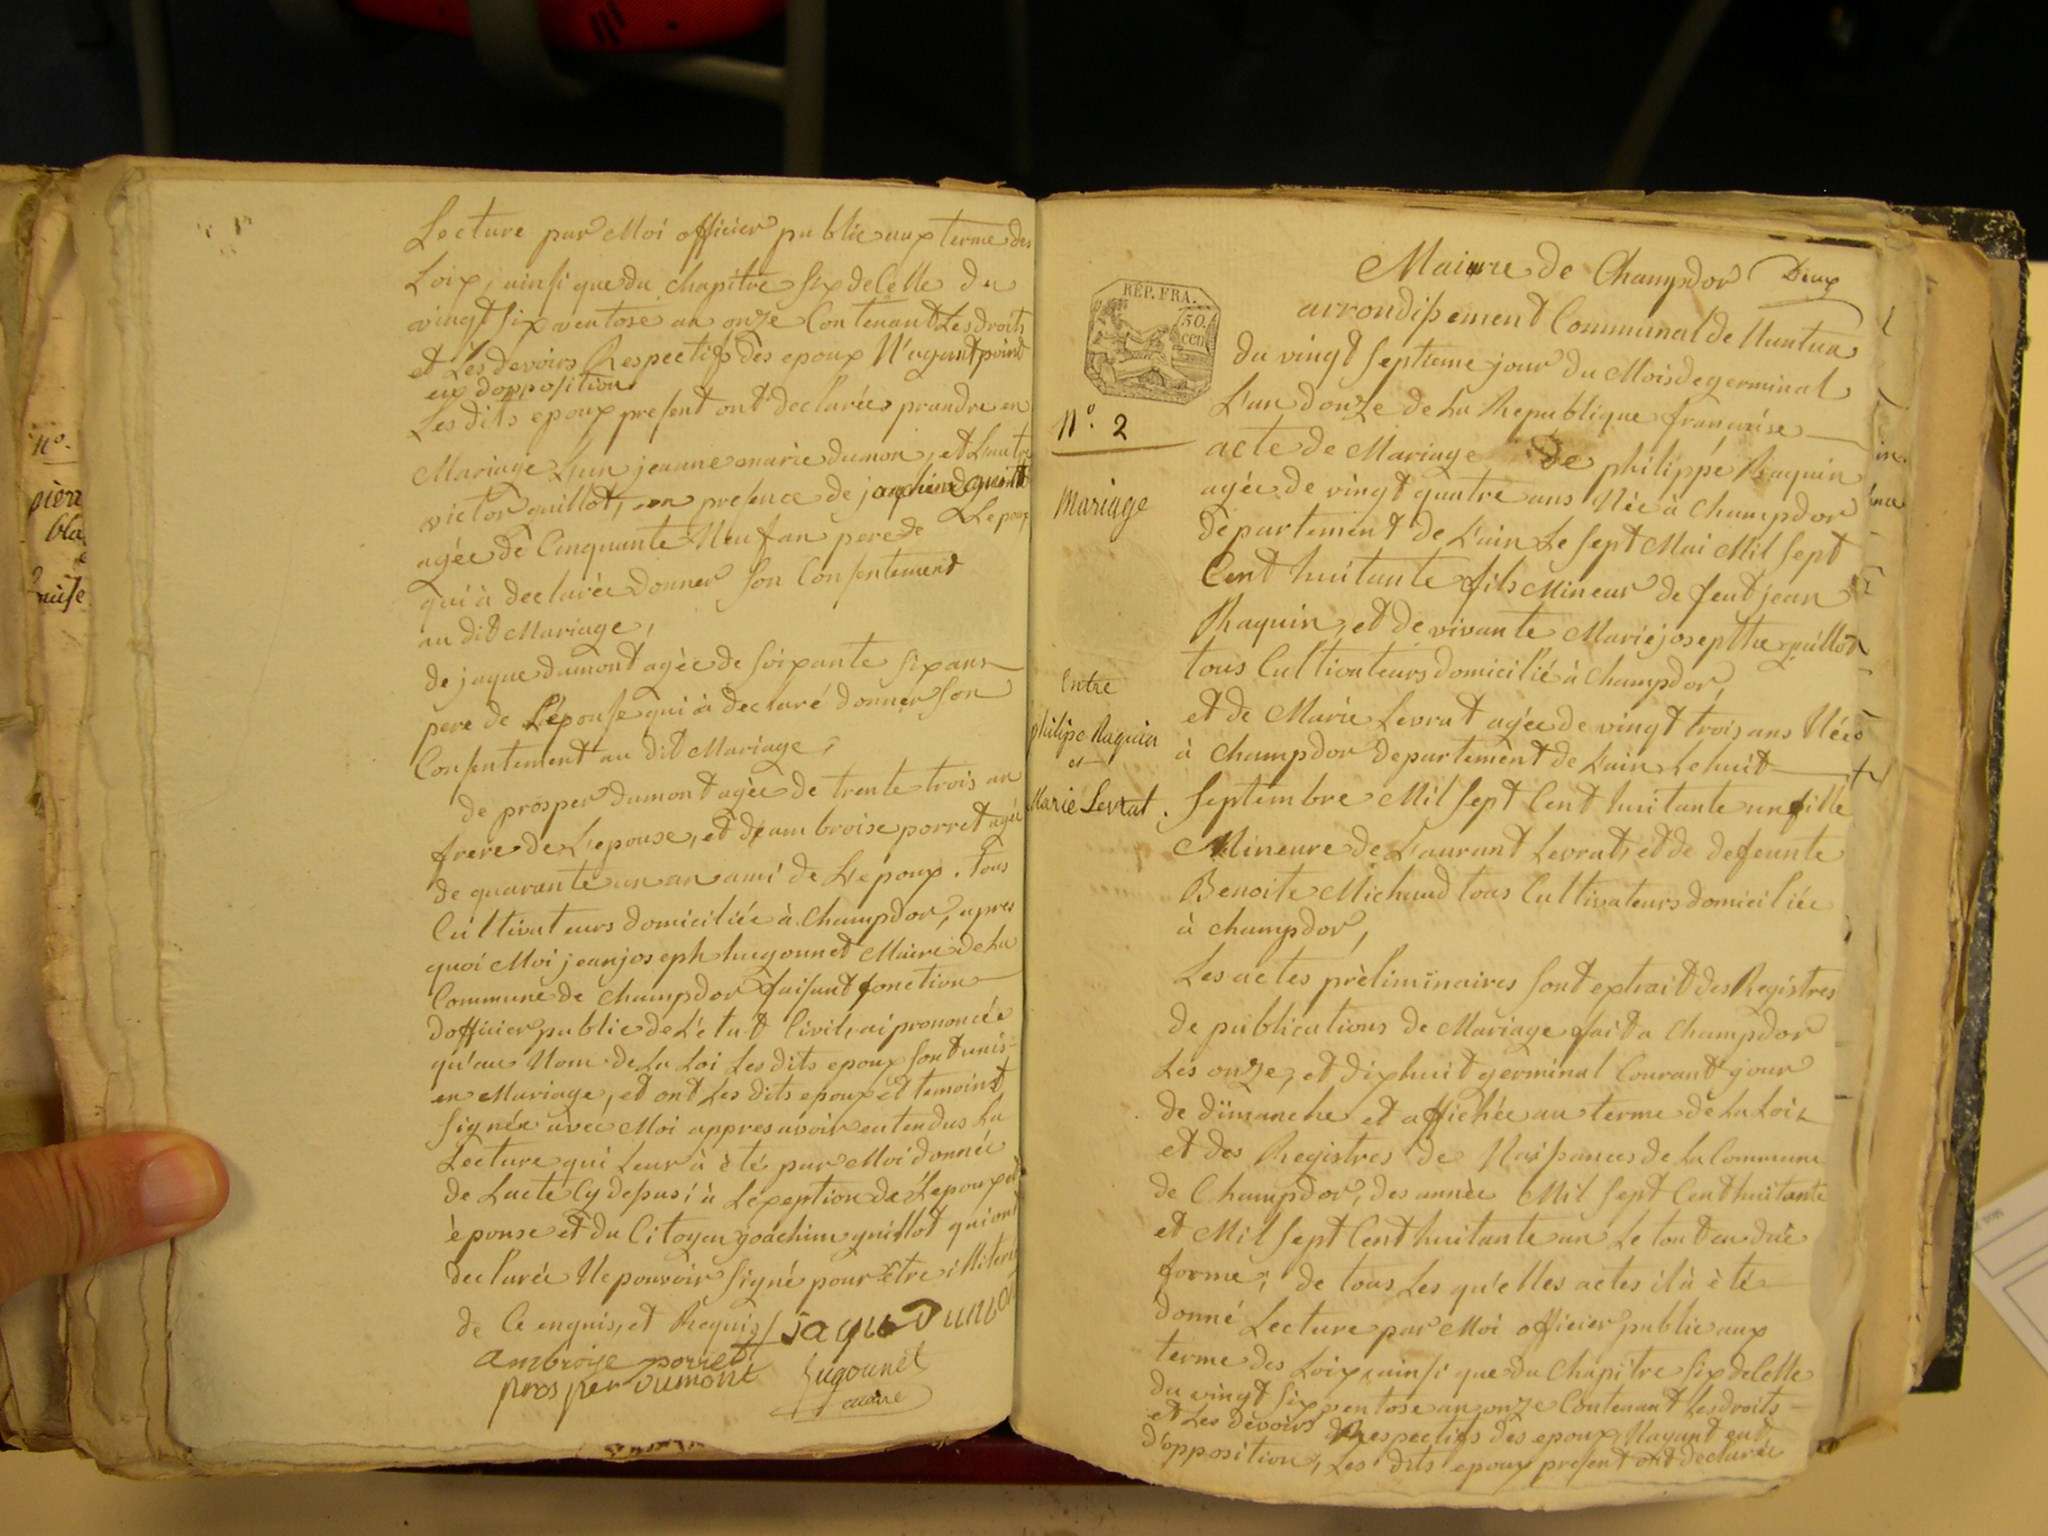 Lecture par Moi officier public aux terme des
Loix, ainsi que du chapitre six de Celle du
vingt six ventose an onze Contenant Les droits
et Les devoirs Respectifs des epoux N'ayant point
eux d'opposition
Les dits epoux present ont declarée prandre en
Mariage L'un jeanne marie dumon, et L'autre
victor guillot, en presence de joachim guillot
agée de Cinquante Neuf an pere de L'epoux
qui à declarée donner son Consentement
au dit Mariage,
de jaque dumont agée de soixante six ans
pere de L'épouse qui à declaré donner son
Consentement au dit Mariage,
de prosper dumont agée de trente trois an
frere de L'epouse, et de ambroise porret agée
de quarante un an ami de L'epoux. tous
Cultivateurs domiciliée à Champdor, apres
quoi Moi jean joseph hugonnet Maire de La
Commune de Champdor faisant fonction
d'officier public de L'état Civil, ai prononcée
qu'au Nom de La Loi Les dits epoux sont unis
en Mariage, et ont Les dits epoux et temoins
signée avec Moi appres avoir entendus La
Lecture qui Leur à èté par Moi donnée
de Lacte Cy dessus; à Lexeption de L'epoux et
épouse et du Citoyen joachim guillot qui ont
declarée Ne pouvoir signé pour être illiteré
de Ce enquis, et Requis / jaque Dumon
Ambroise porret
prosper Dumont hugonnet
maire
Mairie de Champdor Deux
arrondissement Communal de Nantua
RÉP. FRA.
50.
cen
du vingt septieme jour du Mois de germinal
L'an donze de La Republique françoise
N° 2
acte de Mariage de philippe Raquin
agée de vingt quatre ans Née à Champdor
Mariage
departement de L'ain Le sept Mai Mil sept
Cent huitante fils Mineur de feut jean
Raquin, et de vivante Marie josepthe guillot
tous Cultivateurs domicilié à Champdor,
entre
philipe Raquin
et
Marie Levrat.
et de Marie Levrat agée de vingt trois ans Née
à Champdor departement de L'ain Le huit
septembre Mil sept Cent huitante un fille
Mineure de Laurant Levrat, et de defeunte
Benoite Michaud tous Cultivateurs domiciliée
à champdor,
Les actes prèliminaires sont extrait des Registres
de publications de Mariage fait a Champdor
Les onze, et dix huit germinal Courant jour
de dimanche et affichée au terme de La Loi
et des Registres de Naissances de La Commune
de Champdor, des année Mil sept Cent huitante
et Mil sept Cent huitante un Le tout en due
forme; de tous Les qu'elles actes il à èté
donné Lecture par Moi officier public aux
terme des Loix, ainsi que du Chapitre six de Celle
du vingt six ventose an onze Contenant Les droits
et Les devoirs Respectifs des epoux, Nayant eut
d'opposition, Les dits epoux present ont declarée
N°.
pierr
bla